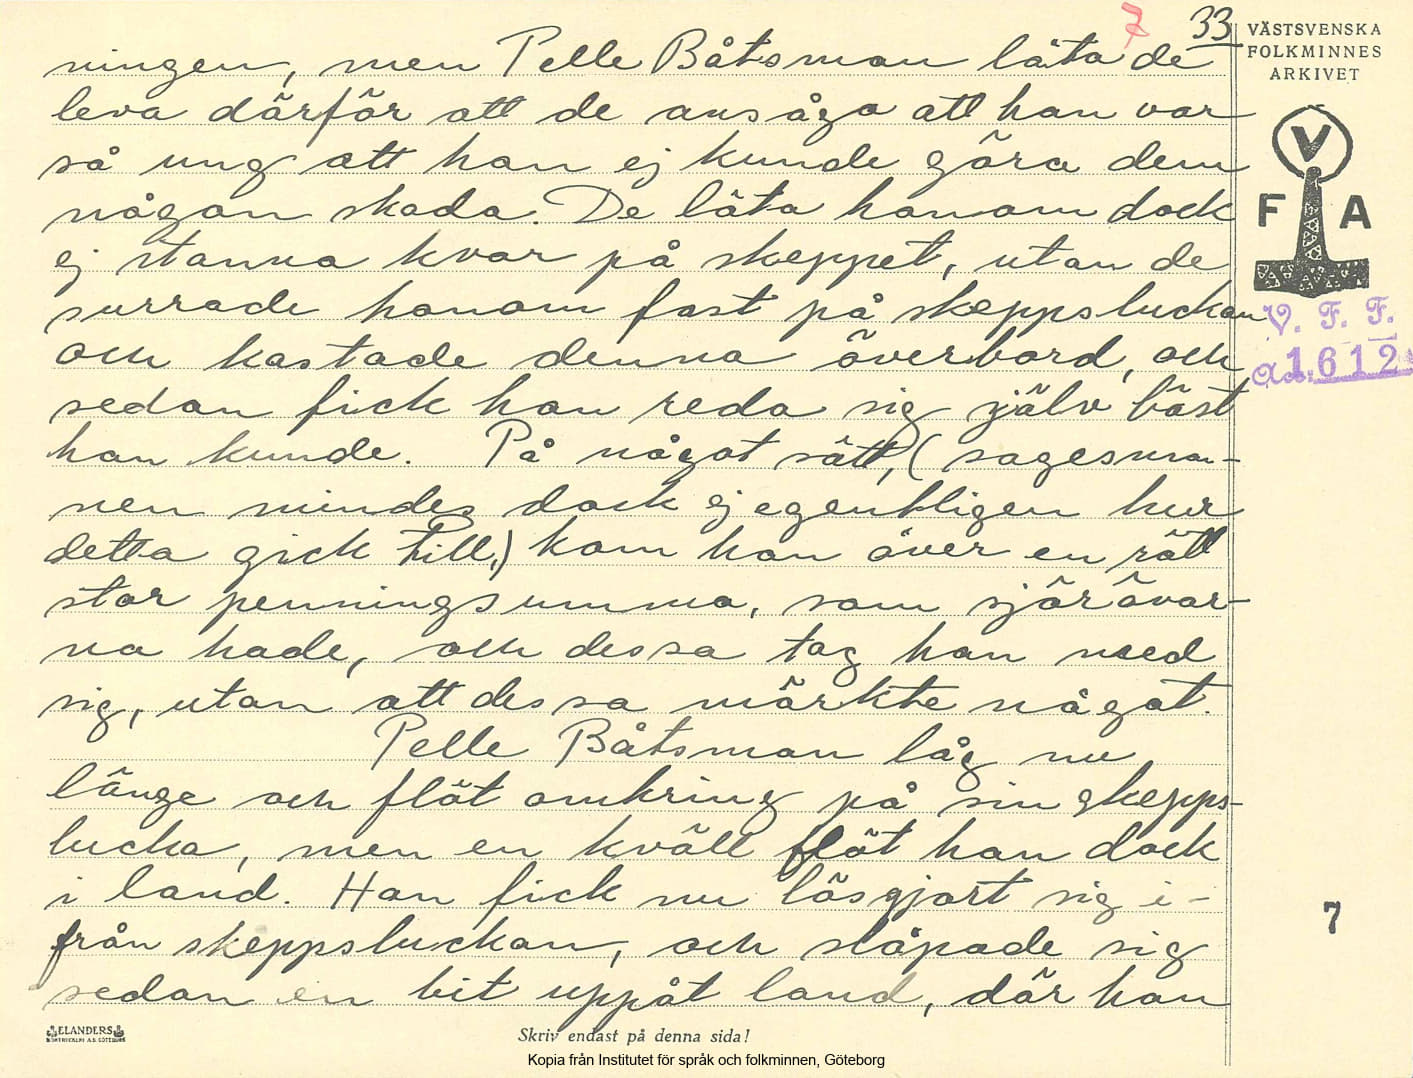 7 33
VÄSTSVENSKA
FOLKMINNES
ARKIVET
V
F A
V. F. F.
1612
ningen, men Pelle Båtsman låta de
leva därför att de ansågo att han var
så ung att han ej kunde göra dem
någon skada. De läto honom dock
ej stanna kvar på skeppet, utan de
surrade honom fast på skeppsluckan
och kastade denna överbord, och
sedan fick han reda sig själv bäst
han kunde. På något sätt, (sagesman-
nen mindes dock ej egentligen hur
detta gick till,) kom han över en rätt
stor penningsumma, som sjörövar-
na hade, och dessa tog han med
sig, utan att dessa märkte något.
Pelle Båtsman låg nu
länge och flöt omkring på sin skepps-
lucka, men en kväll flöt han dock
i land. Han fick nu lösgjort sig i-
från skeppsluckan, och släpade sig
sedan en bit uppåt land, där han
7
ELANDERS
Skriv endast på denna sida!
Kopia från Institutet för språk och folkminnen, Göteborg